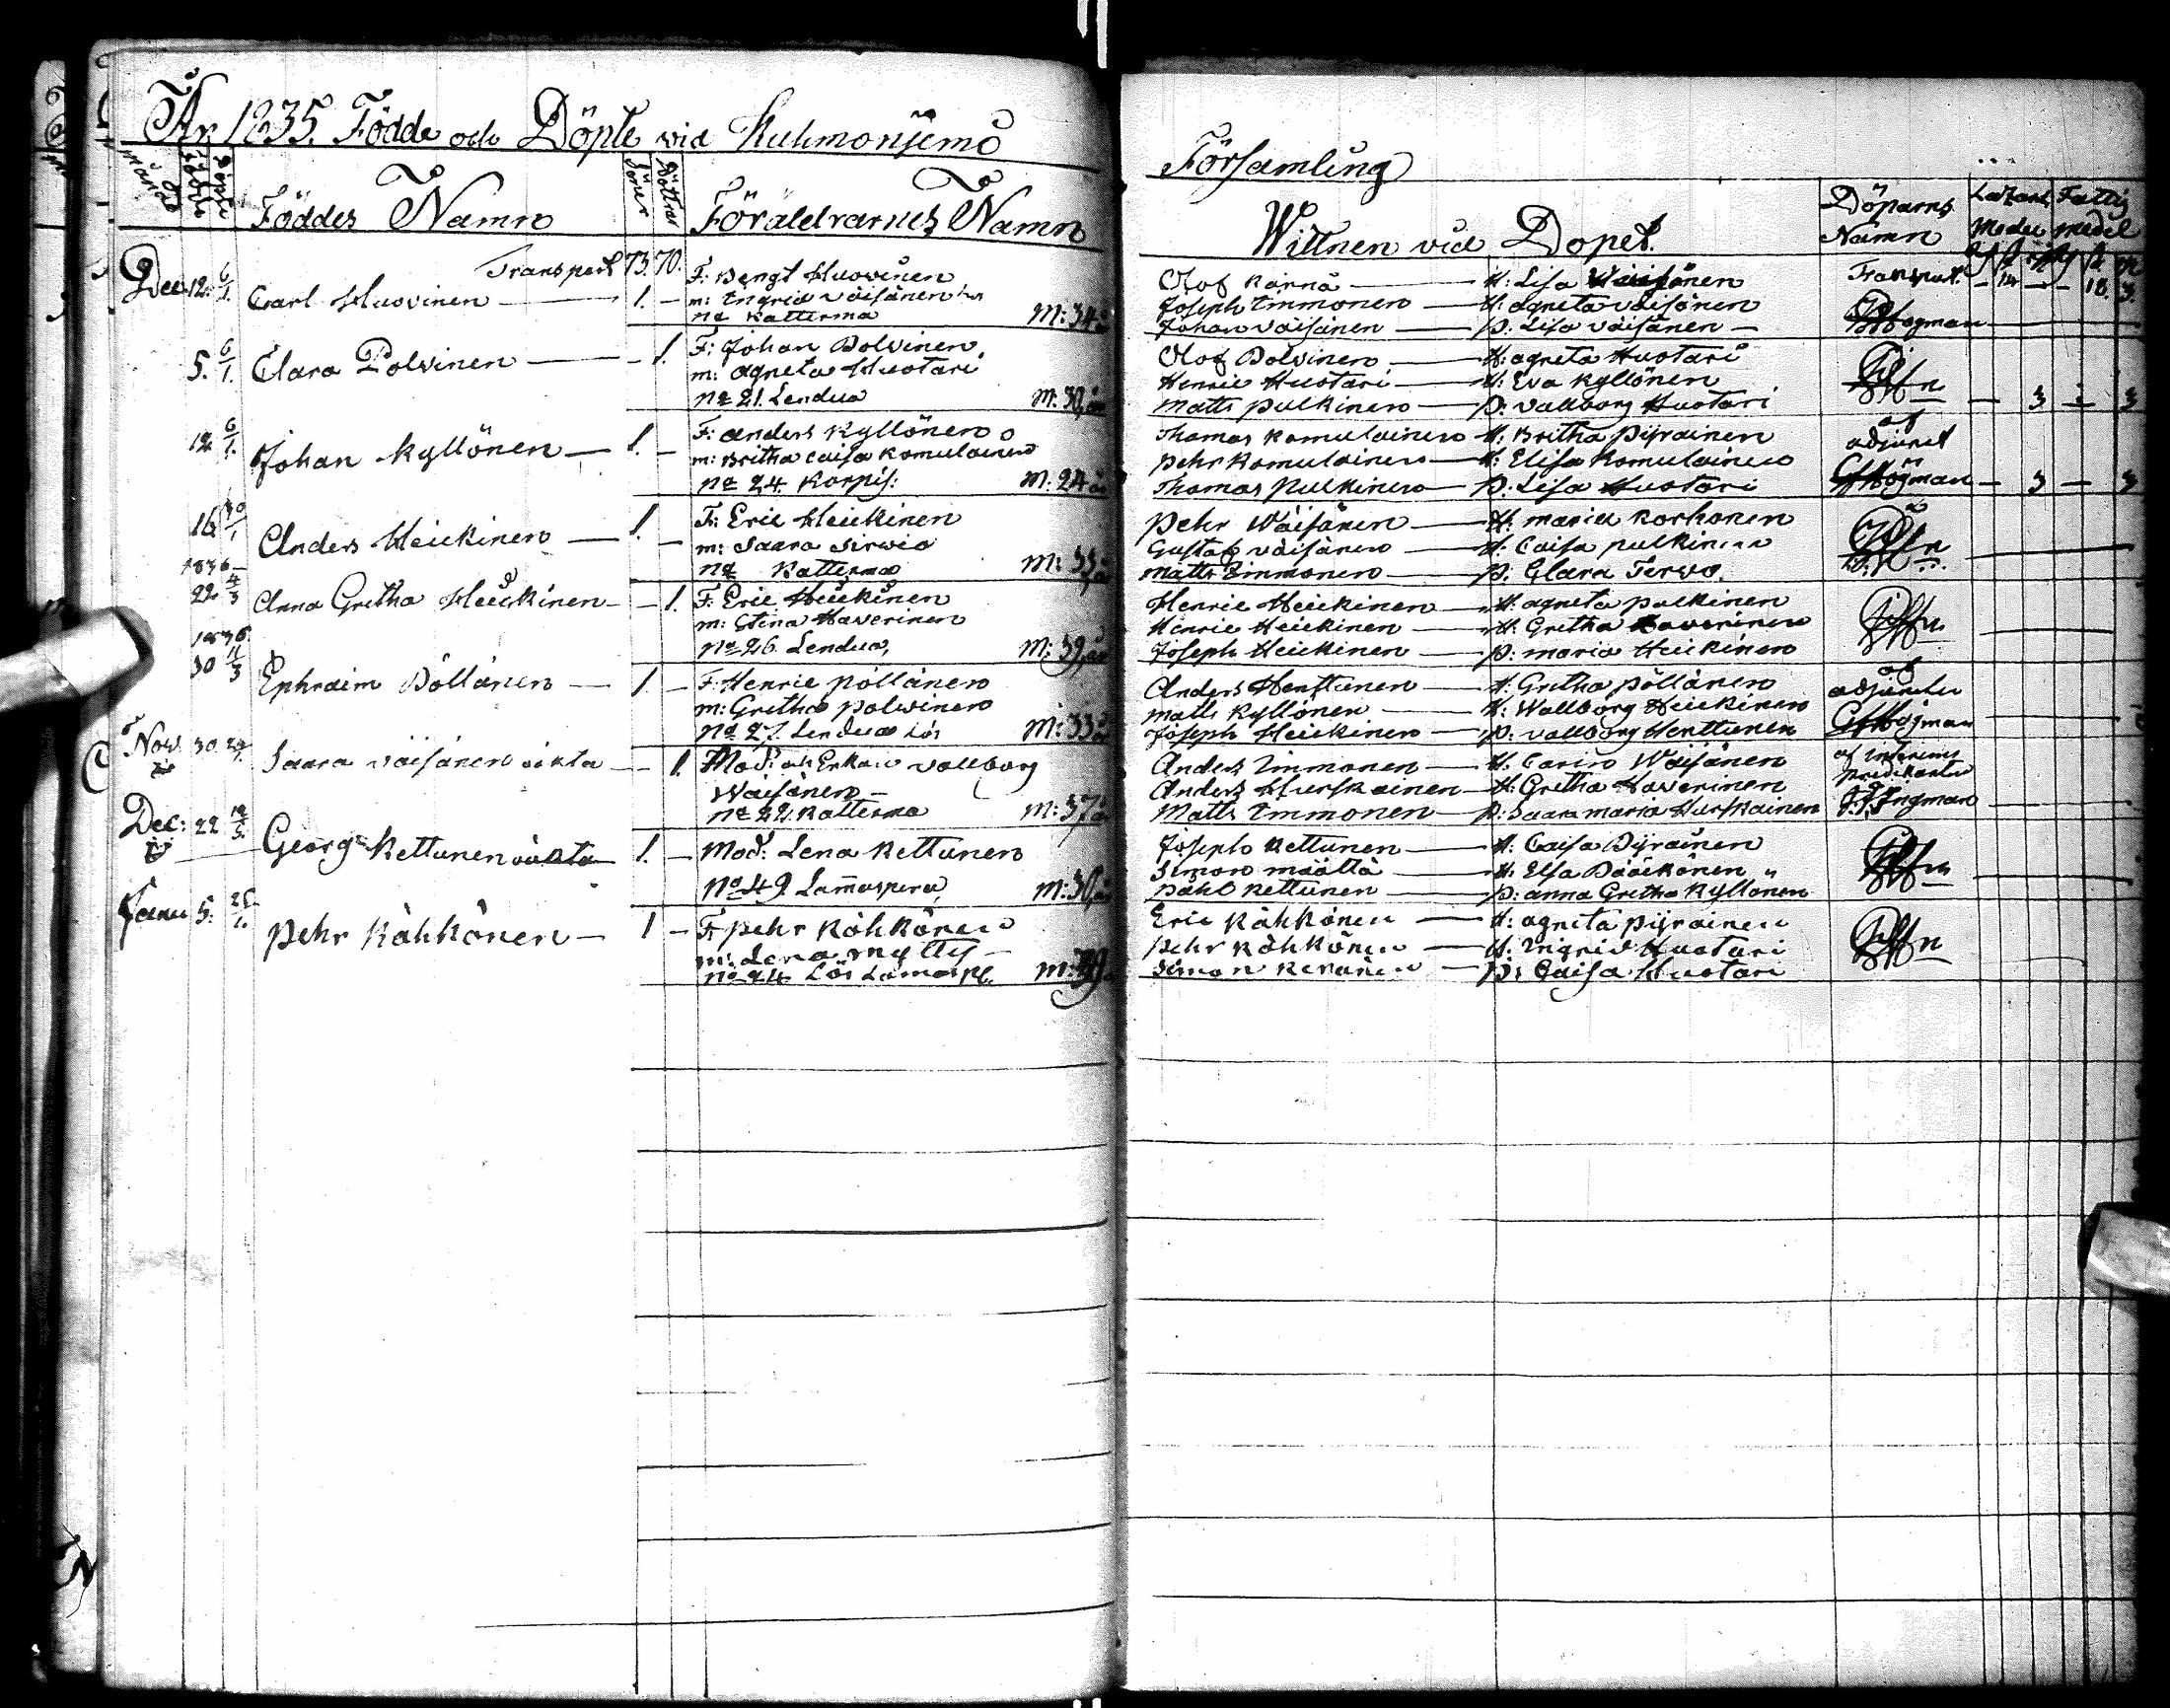 År 1835. Födde och Döpte vid Kuhmoniemi
Månad
Födde
Döpte
Föddes Namn
Söner
Döttrar
Föräldrarnes Namn
Transport 73. 70.
Dec: 12. 6/1. Carl Huovinen — 1. —
F: Bengt Huovinen
m: Ingrid Väisänen
No Katterma M: 34 år
5. 6/1. Clara Polvinen — — 1.
F: Johan Polvinen
m: Agneta Huotari
No 21. Lendua M: 30 år
12 6/1. Johan Kyllönen — 1. —
F: Anders Kyllönen
m: Britha Caisa Komulainen
No 24. Korpis: M: 24 år
16 30/1 Anders Heickinen — 1. —
F: Eric Heickinen
m: Saara Sirviö
No Katterma M: 33 år
1836
22 4/3 Anna Gretha Heickinen — — 1.
F: Eric Heickinen
m: Stina Haverinen
No 26. Lendua, M: 39, år
1836.
30 11/3 Ephraim Pöllänen — 1. —
F: Henric Pöllänen
m: Gretha Polvinen
No 27. Lendua Lös M: 33 år
Nov. 30 Saara Väisänen oäkta — 1.
Mod: och Enkan Vallborg
Väisänen —
No 22. Katterma M: 37 år
Dec: 22 Georg Kettunen oäkta — 1. —
Mod: Lena Kettunen
No 49. Lammaspera, M: 30, år
Janu 5. 25/1. Pehr Kähkönen — 1 —
F: Pehr Kähkönen
m: Lena Mytty —
No 24 Lös Lamaspe. M: 39
Församling
Wittnen vid Dopet.
Döparns Namn
Lazaret Medel
Fattig medel
Olof Kärnä — H: Lisa Väisänen Transport. — 14 — — 18. 3.
Joseph Immonen — H: Agneta Väisänen
Johan Väisänen — P: Lisa Väisänen — Högman
Olof Polvinen — H: Agneta Huotari
Henric Huotari — H: Eva Kyllönen
Matts Pulkinen — P: Vallborg Huotari — 3 — 3
Thomas Komulainen H: Britha Pyrainen af
Pehr Komulainen — H: Elisa Komulainen adjunct
Thomas Pulkinen — P: Lisa Huotari Högman — 3 — 3
Pehr Wäisänen — H: Maria Korhonen
Gustaf Väisänen — H: Caisa Pulkinen
Matts Immonen — P: Clara Tervo.
Henric Heickinen — H: Agneta Pulkinen
Henric Heickinen — H: Gretha Haverinen
Joseph Heickinen — P: Maria Heickinen
Anders Henttunen — H: Gretha Pöllänen af
Matts Kyllönen — H: Wallborg Heickinen adjuncten
Joseph Heickinen — P: Vallborg Henttunen Högman
Anders Immonen — H: Carin Wäisänen af Interims
Anders Hurskainen — H: Gretha Haverinen predikanten
Matts Immonen — P: Saara Maria Hurskainen Ingman
Joseph Kettunen — H: Caisa Pyrainen
Simon Määttä — H: Elsa Pääkönen
Påhl Kettunen — P: Anna Gretha Kyllönen
Eric Kähkönen — H: Agneta Pyrainen
Pehr Kähkönen — H: Ingrid Huotari
Simon Keränen — P: Caisa Huotari